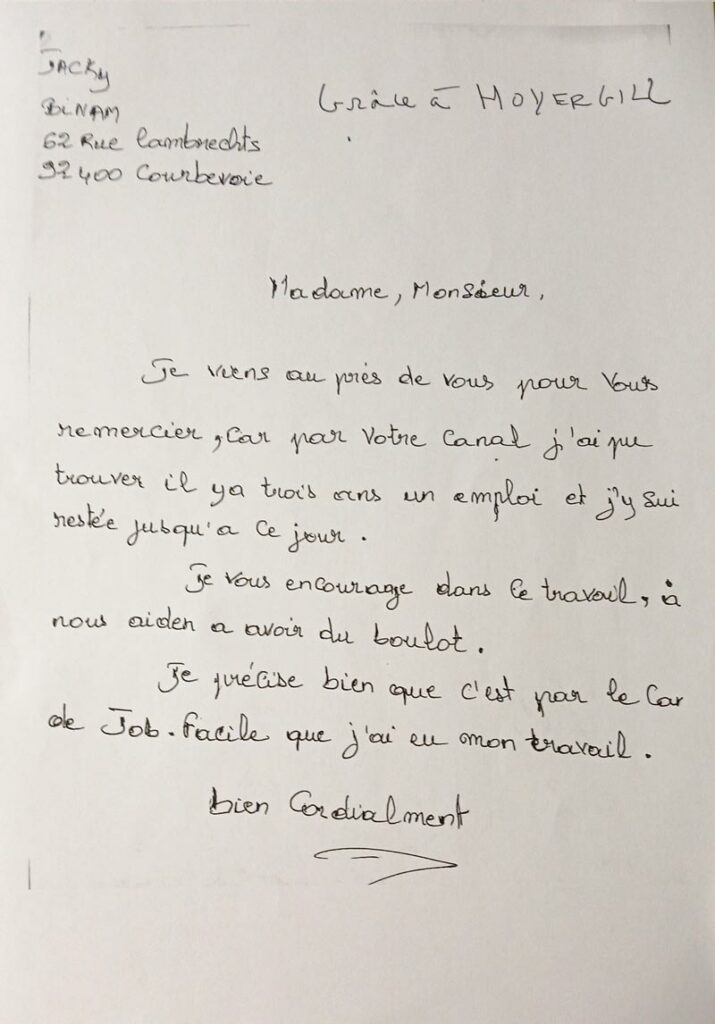 JACKY
BINAM
62 Rue Lambrechts
92400 Courbevoie
Grâce à MOYERGILL
Madame, Monsieur,
Je viens au près de vous pour vous
remercier, car par votre canal j'ai pu
trouver il ya trois ans un emploi et j'y sui
restée jusqu'a ce jour.
Je vous encourage dans le travail, à
nous aider a avoir du boulot.
Je précise bien que c'est par le Car
de Job. facile que j'ai eu mon travail.
bien Cordialment